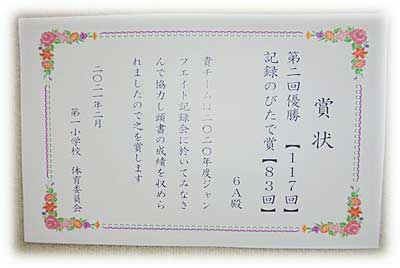 賞状
第二回優勝 【117回】
記録のびたで賞【83回】
6A殿
貴チームは二〇二〇年度ジャン
フエイト記録会に於いてみなさ
んで協力し頭書の成績を収めら
れましたので之を賞します
二〇二一年二月
第一小学校 体育委員会